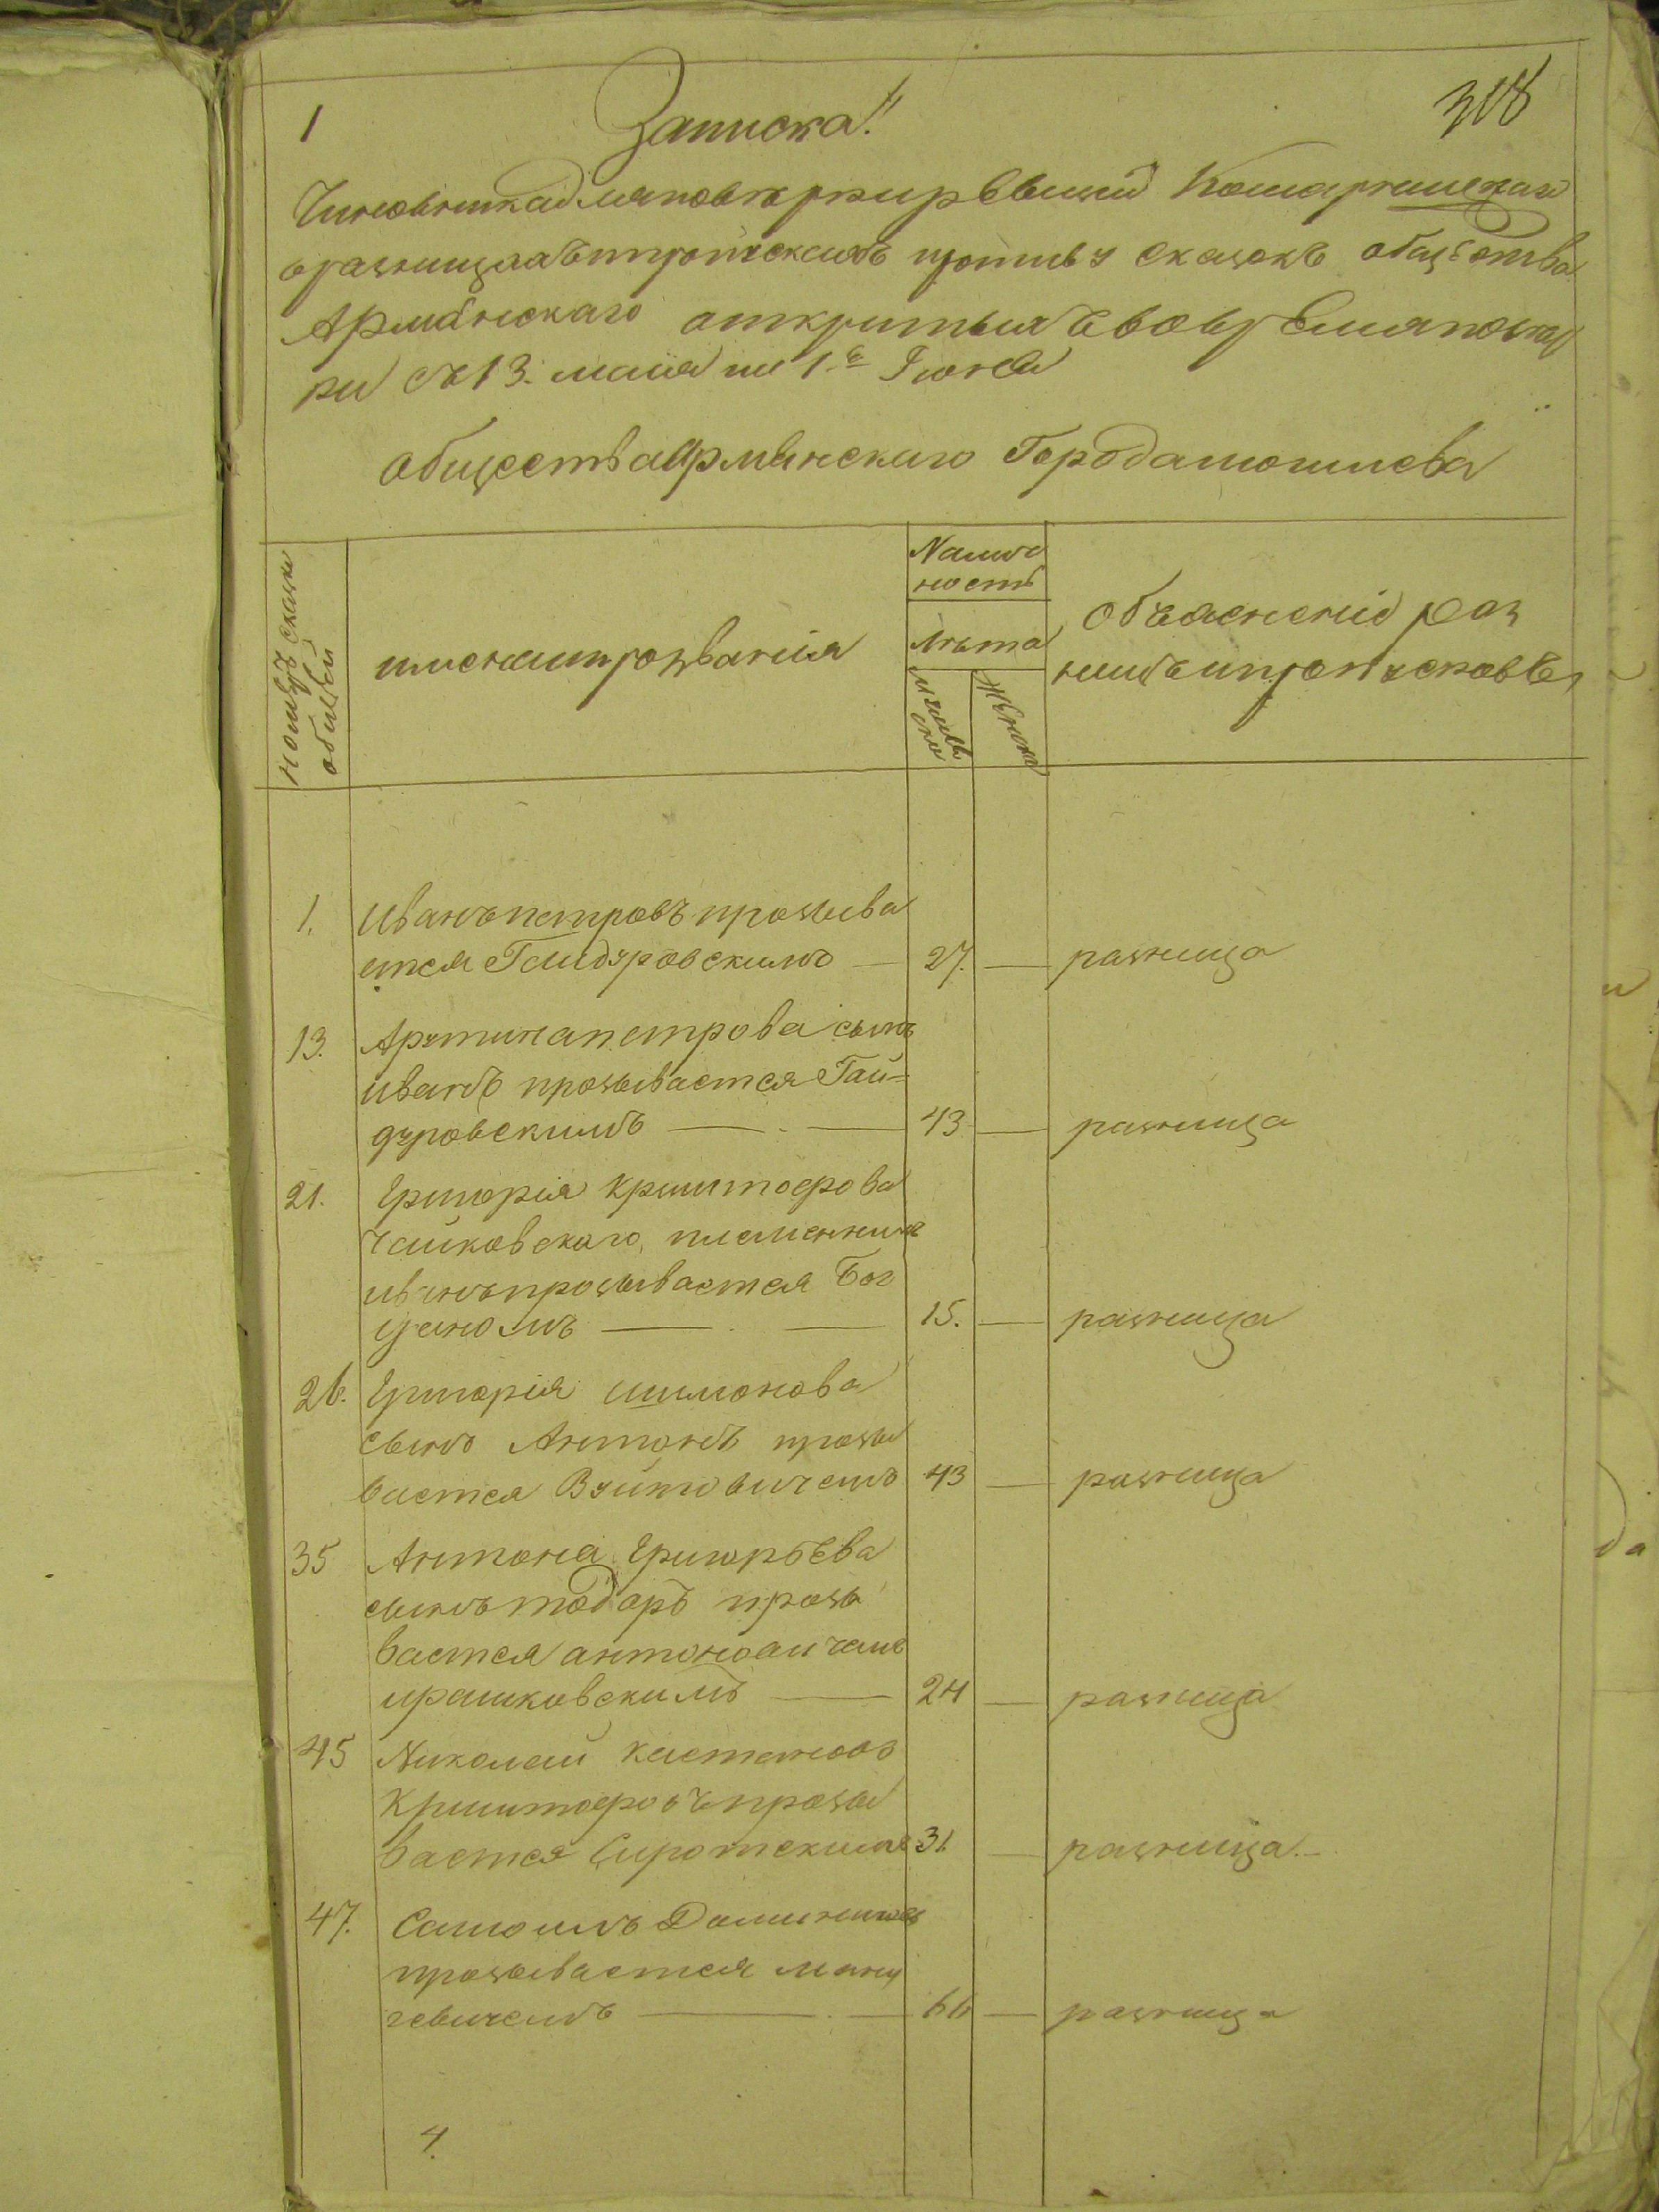 1 Записка! 308
Чиновника для поверки ревизии Комарницкаго
о разницахъ и пропускахъ противу сказокъ общества
Армянскаго откритыхъ вовремя повер
ки съ 13. маия по 1.е Июня
общества Армянскаго Города могилева
номеръ сказки
общей
имена и прозвания
Налич
ность
лѣта
мужеск
женска
объяснение раз
ницъ и пропусковъ
1. Иванъ петровъ прозыва
ется Гайдуровскимъ — 27. — разница
13. Артина петрова сынъ
иванъ прозывается Гай=
дуровскимъ — . — 43 — разница
21. Григория Криштофова
чайковскаго племенникъ
иванъ прозывается Бог
даномъ — . — 15. — разница
26. Григория шимонова
сынъ Антонъ прозы
вается Вуйтовичемъ 43 — разница
35 Антона Григорьева
сынъ тодоръ прозы
вается антоновичемъ
ирашковскимъ — 24 — разница
45 Николай кастановъ
Криштофовъ прозы
вается Сиротскимъ 31 — разница. -
47. Самоилъ Доминиковъ
прозывается манц
гевичемъ — . — 66 — разница
4.